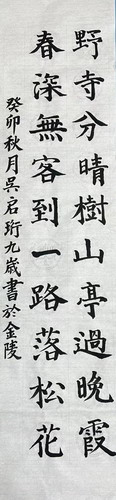 野寺分晴樹山亭過晚霞
春深無客到一路落松花
癸卯秋月吳启珩九歲書於金陵